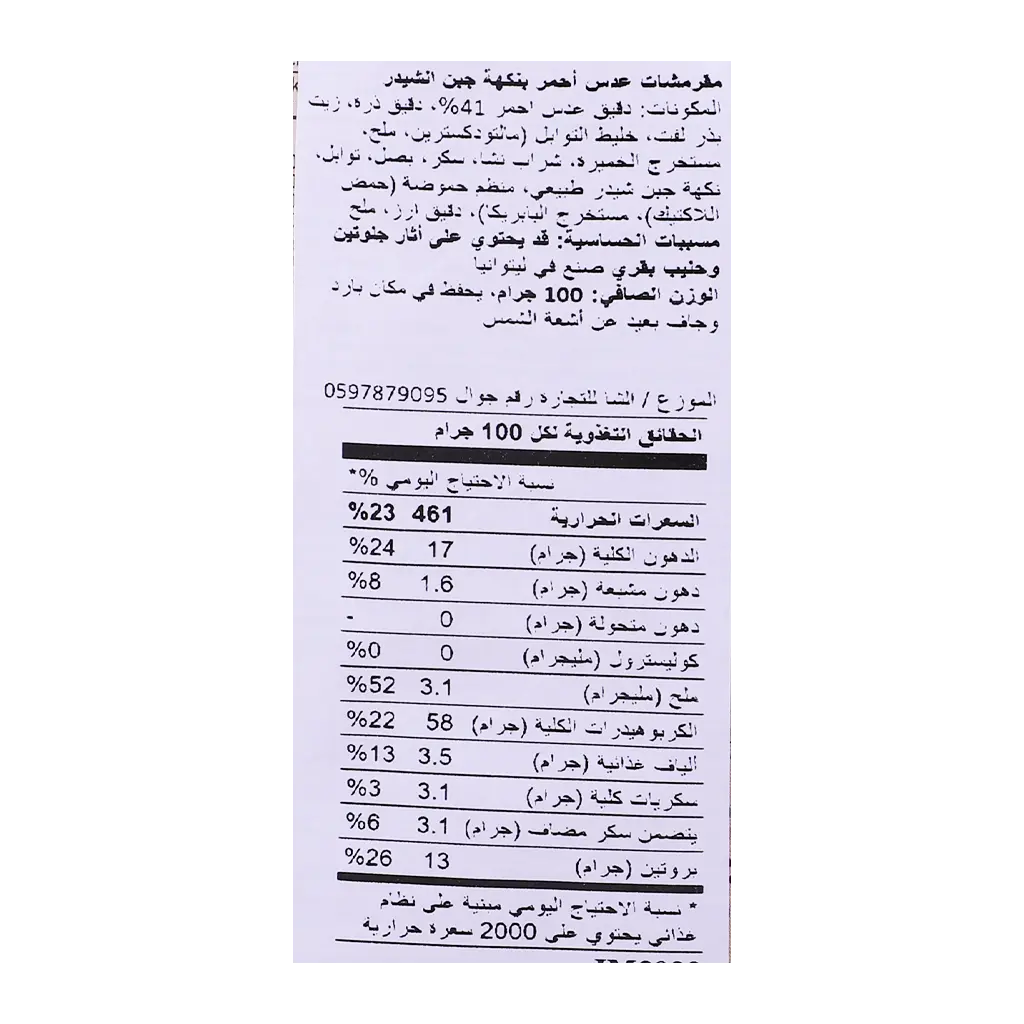 مقرمشات عدس أحمر بنكهة جبن الشيدر
المكونات: دقيق عدس احمر 41%، دقيق ذرة، زيت
بذر لفت، خليط التوابل (مالتودكسترين، ملح،
مستخرج الخميرة، شراب نشا، سكر، بصل، توابل،
نكهة جبن شيدر طبيعي، منظم حموضة (حمض
اللاكتيك)، مستخرج البابريكا)، دقيق ارز، ملح
مسببات الحساسية: قد يحتوي على أثار جلوتين
وحليب بقري صنع في ليتوانيا
الوزن الصافي: 100 جرام، يحفظ في مكان بارد
وجاف بعيد عن أشعة الشمس
الموزع / الشا للتجارة رقم جوال 0597879095
الحقائق التغذوية لكل 100 جرام
نسبة الاحتياج اليومي %*
السعرات الحرارية 461 23%
الدهون الكلية (جرام) 17 24%
دهون مشبعة (جرام) 1.6 8%
دهون متحولة (جرام) 0 -
كوليسترول (مليجرام) 0 0%
ملح (مليجرام) 3.1 52%
الكربوهيدرات الكلية (جرام) 58 22%
ألياف غذائية (جرام) 3.5 13%
سكريات كلية (جرام) 3.1 3%
يتضمن سكر مضاف (جرام) 3.1 6%
بروتين (جرام) 13 26%
* نسبة الاحتياج اليومي مبنية على نظام
غذائي يحتوي على 2000 سعرة حرارية